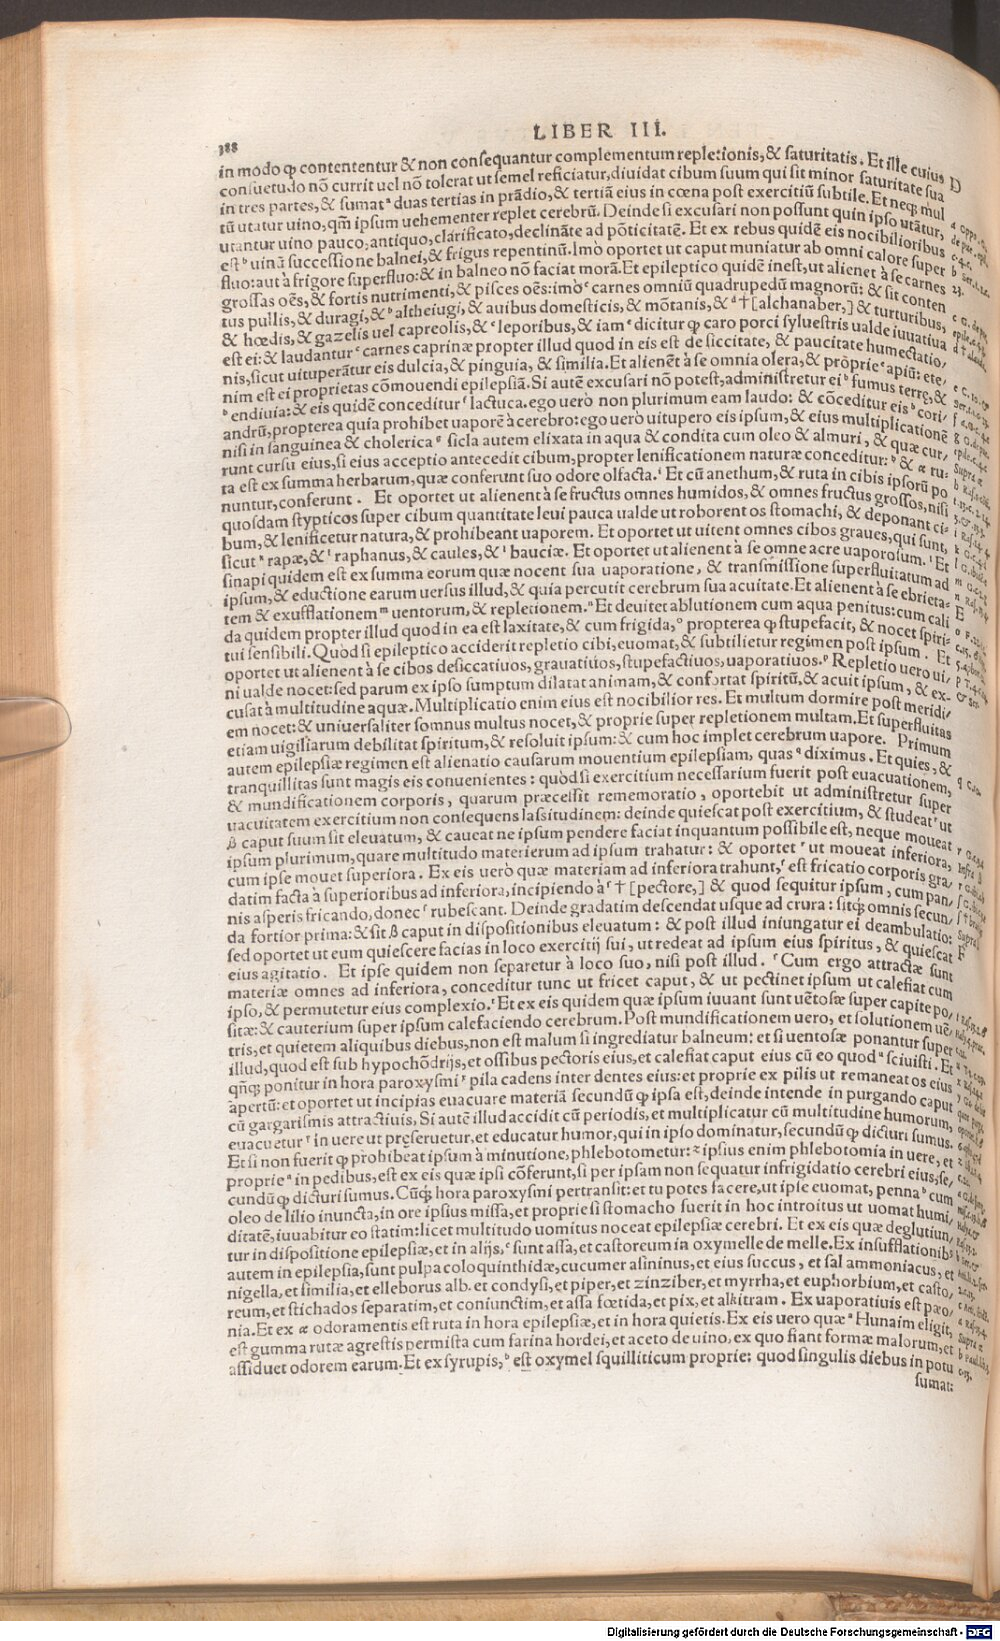 388
LIBER III.
in modo ꝙ contententur & non consequantur complementum repletionis, & saturitatis. Et ille cuius
consuetudo nō currit uel nō tolerat ut semel reficiatur, diuidat cibum suum qui sit minor saturitate sua
in tres partes, & sumat ª duas tertias in prādio, & tertiā eius in cœna post exercitiū subtile. Et neq; mul
tū utatur uino, qm̄ ipsum uehementer replet cerebrū. Deinde si excusari non possunt quin ipso utātur,
utantur uino pauco, antiquo, clarificato, declināte ad pōticitatē. Et ex rebus quidē eis nocibilioribus
est ᵇ uinū successione balnei, & frigus repentinū. Imò oportet ut caput muniatur ab omni calore super
fluo: aut à frigore superfluo: & in balneo nō faciat morā. Et epileptico quidē inest, ut alienet à se carnes
grossas oēs, & fortis nutrimenti, & pisces oēs: imò ᶜ carnes omniū quadrupedū magnorū: & sit conten
tus pullis, & duragi, & ᵇ altheiugi, & auibus domesticis, & mōtanis, & ᵈ † [alchanaber,] & turturibus,
& hœdis, & gazelis uel capreolis, & ᵉ leporibus, & iam ᵉ dicitur ꝙ caro porci syluestris ualde iuuatiua
est ei: & laudantur ᶜ carnes caprinæ propter illud quod in eis est de siccitate, & paucitate humectatio/
nis, sicut uituperātur eis dulcia, & pinguia, & similia. Et alienēt à se omnia olera, & pròprie ᵉ apiū: ete/
nim est ei proprietas cōmouendi epilepsiā. Si autē excusari nō potest, administretur ei ᵇ fumus terrę, &
ᵇ endiuia: & eis quidē conceditur ᶠ lactuca. ego uerò non plurimum eam laudo: & cōceditur eis ᵇ cori/
andrū, propterea quia prohibet uaporē à cerebro: ego uerò uitupero eis ipsum, & eius multiplicationē
nisi in sanguinea & cholerica ᵍ sicla autem elixata in aqua & condita cum oleo & almuri, & quæ cur/
runt cursu eius, si eius acceptio antecedit cibum, propter lenificationem naturæ conceditur: ʰ & æ ru-
ta est ex summa herbarum, quæ conferunt suo odore olfacta. ⁱ Et cū anethum, & ruta in cibis ipsorū po
nuntur, conferunt. Et oportet ut alienent à se fructus omnes humidos, & omnes fructus grossos, nisi
quosdam stypticos super cibum quantitate leui pauca ualde ut roborent os stomachi, & deponant ci-
bum, & lenificetur natura, & prohibeant uaporem. Et oportet ut uitent omnes cibos graues, qui sunt,
sicut ᵏ rapæ, & ˡ raphanus, & caules, & ˡ bauciæ. Et oportet ut alienent à se omne acre uaporosum. ˡ Et
sinapi quidem est ex summa eorum quæ nocent sua uaporatione, & transmissione superfluitatum ad
ipsum, & eductione earum uersus illud, & quia percutit cerebrum sua acuitate. Et alienent à se ebrieta-
tem & exufflationem ᵐ uentorum, & repletionem. ⁿ Et deuitet ablutionem cum aqua penitus: cum cali
da quidem propter illud quod in ea est laxitate, & cum frigida, ᵒ propterea ꝙ stupefacit, & nocet spiri-
tui sensibili. Quòd si epileptico acciderit repletio cibi, euomat, & subtilietur regimen post ipsum. Et
oportet ut alienent à se cibos desiccatiuos, grauatiuos, stupefactiuos, uaporatiuos. ᵖ Repletio uero ui/
ni ualde nocet: sed parum ex ipso sumptum dilatat animam, & confortat spiritū, & acuit ipsum, & ex-
cusat à multitudine aquæ. Multiplicatio enim eius est nocibilior res. Et multum dormire post meridi/
em nocet: & uniuersaliter somnus multus nocet, & proprie super repletionem multam. Et superfluitas
etiam uigiliarum debilitat spiritum, & resoluit ipsum: & cum hoc implet cerebrum uapore. Primum
autem epilepsiæ regimen est alienatio causarum mouentium epilepsiam, quas ᑫ diximus. Et quies, &
tranquillitas sunt magis eis conuenientes: quòd si exercitium necessarium fuerit post euacuationem,
& mundificationem corporis, quarum præcessit rememoratio, oportebit ut administretur super
uacuitatem exercitium non consequens lassitudinem: deinde quiescat post exercitium, & studeat ʳ ut
ꝭ caput suum sit eleuatum, & caueat ne ipsum pendere faciat inquantum possibile est, neque moueat
ipsum plurimum, quare multitudo materierum ad ipsum trahatur: & oportet ʳ ut moueat inferiora,
cum ipse mouet superiora. Ex eis uerò quæ materiam ad inferiora trahunt, ᶠ est fricatio corporis gra/
datim facta à superioribus ad inferiora, incipiendo à ᶠ † [pectore,] & quod sequitur ipsum, cum pan/
nis asperis fricando, donec ᶠ rubescant. Deinde gradatim descendat usque ad crura: sitq́; omnis secun/
da fortior prima: & sit ꝭ caput in dispositionibus eleuatum: & post illud iniungatur ei deambulatio:
sed oportet ut eum quiescere facias in loco exercitij sui, ut redeat ad ipsum eius spiritus, & quiescat
eius agitatio. Et ipse quidem non separetur à loco suo, nisi post illud. ᶠ Cum ergo attractæ sunt
materiæ omnes ad inferiora, conceditur tunc ut fricet caput, & ut pectinet ipsum ut calefiat cum
ipso, & permutetur eius complexio. ᵗ Et ex eis quidem quæ ipsum iuuant sunt uētosæ super capite po/
sitæ: & cauterium super ipsum calefaciendo cerebrum. Post mundificationem uero, et solutionem uē/
tris, et quietem aliquibus diebus, non est malum si ingrediatur balneum: et si uentosæ ponantur super
illud, quod est sub hypochōdrijs, et ossibus pectoris eius, et calefiat caput eius cū eo quod ᵘ sciuisti. Et
qn̄q; ponitur in hora paroxysmi ˣ pila cadens inter dentes eius: et proprie ex pilis ut remaneat os eius
apertū: et oportet ut incipias euacuare materiā secundū ꝙ ipsa est, deinde intende in purgando caput
cū gargarismis attractiuis, Si autē illud accidit cū periodis, et multiplicatur cū multitudine humorum,
euacuetur ʸ in uere ut preseruetur, et educatur humor, qui in ipso dominatur, secundū ꝙ dicturi sumus.
Et si non fuerit ꝙ prohibeat ipsum à minutione, phlebotometur: ᶻ ipsius enim phlebotomia in uere, et
proprie ª in pedibus, est ex eis quæ ipsi cōferunt, si per ipsam non sequatur infrigidatio cerebri eius, se/
cundū ꝙ dicturi sumus. Cūq́; hora paroxysmi pertransit: et tu potes facere, ut ipse euomat, penna ᵇ cum
oleo de lilio inuncta, in ore ipsius missa, et proprie si stomacho fuerit in hoc introitus ut uomat humi/
ditatē, iuuabitur eo statim: licet multitudo uomitus noceat epilepsiæ cerebri. Et ex eis quæ deglutiun/
tur in dispositione epilepsiæ, et in alijs, ᶜ sunt assa, et castoreum in oxymelle de melle. Ex insufflationib⁹
autem in epilepsia, sunt pulpa coloquinthidæ, cucumer asininus, et eius succus, et sal ammoniacus, et
nigella, et similia, et elleborus alb. et condysi, et piper, et zinziber, et myrrha, et euphorbium, et casto/
reum, et stichados separatim, et coniunctim, et assa fœtida, et pix, et alkitram. Ex uaporatiuis est pæo/
nia. Et ex æ odoramentis est ruta in hora epilepsiæ, et in hora quietis. Ex eis uero quæ ª Hunaim eligit,
est gumma rutæ agrestis permista cum farina hordei, et aceto de uino, ex quo fiant formæ malorum, et
assiduet odorem earum. Et ex syrupis, ᵇ est oxymel squilliticum proprie: quod singulis diebus in potu
sumat:
D
E
F
Digitalisierung gefördert durch die Deutsche Forschungsgemeinschaft - DFG